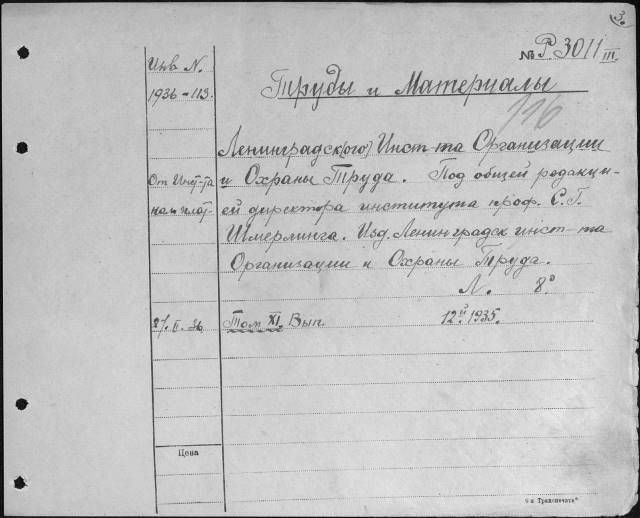 3.
№ Р. 3011 III.
Инв. N.
1936-113.
Труды и Материалы
116
Ленинградск(ого) Инст-та Организации
и Охраны Труда. Под общей редакци-
ей директора института проф. С. Г.
Шмерлинга. Изд. Ленинградск инст-та
Организации и Охраны Труда.
Л. 8°
От Инст-та
Том XI. Вып. 12й 1935.
Цена